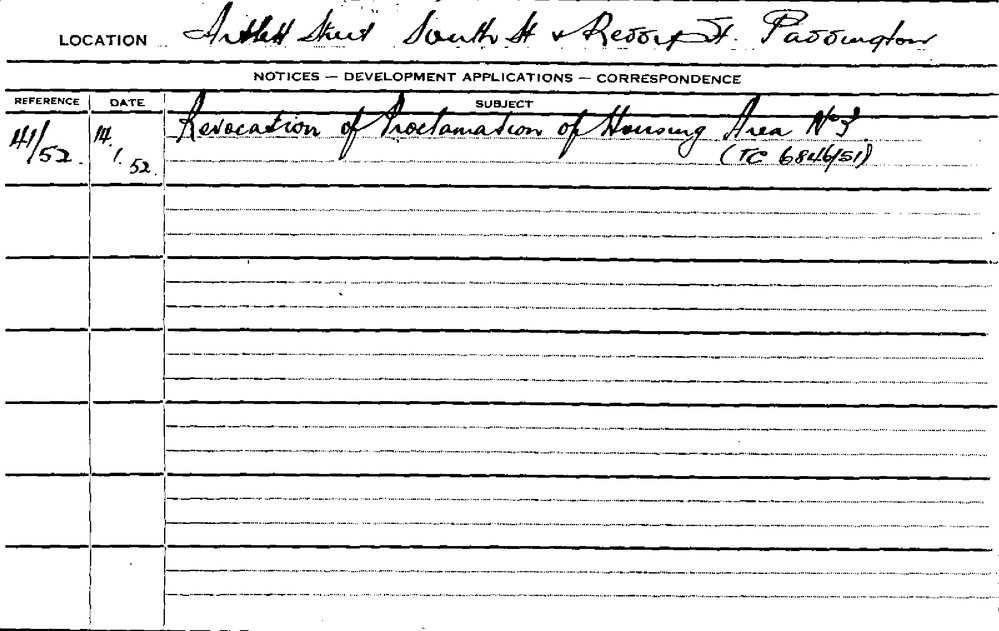 LOCATION Artlett Street South St & Regent St. Paddington
NOTICES — DEVELOPMENT APPLICATIONS — CORRESPONDENCE
REFERENCE DATE SUBJECT
41/52. 14.1.52. Revocation of Proclamation of Housing Area No 3.
(TC 6846/51)